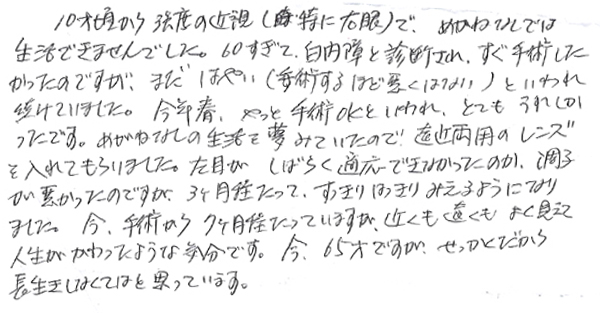 10才頃から強度の近視(特に右眼)で、めがねなしでは
生活できませんでした。60すぎて、白内障と診断され、すぐ手術した
かったのですが、まだはやい(手術するほど悪くはない)といわれ
続けていました。今年春、やっと手術OKといわれ、とてもうれしか
ったです。めがねなしの生活を夢みていたので、遠近両用のレンズ
を入れてもらいました。左目がしばらく適応できなかったのか、調子
が悪かったのですが、3ヶ月経たって、すっきりはっきりみえるようになり
ました。今、手術から7ヶ月経たっていますが、近くも遠くもよく見えて
人生がかわったような気分です。今、65才ですが、せっかくだから
長生きしなくてはと思っています。